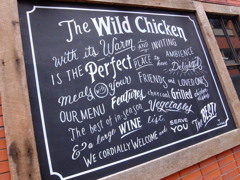 The Wild Chicken
With its Warm AND INVITING
IS THE Perfect PLACE to have AMBIENCE
meals with Your Delightful
FRIENDS and LOVED ONES
OUR MENU Features charcoal Grilled chicken
The best of in-season Vegetables
& a large WINE list.
WE CORDIALLY WELCOME and SERVE YOU The BEST!